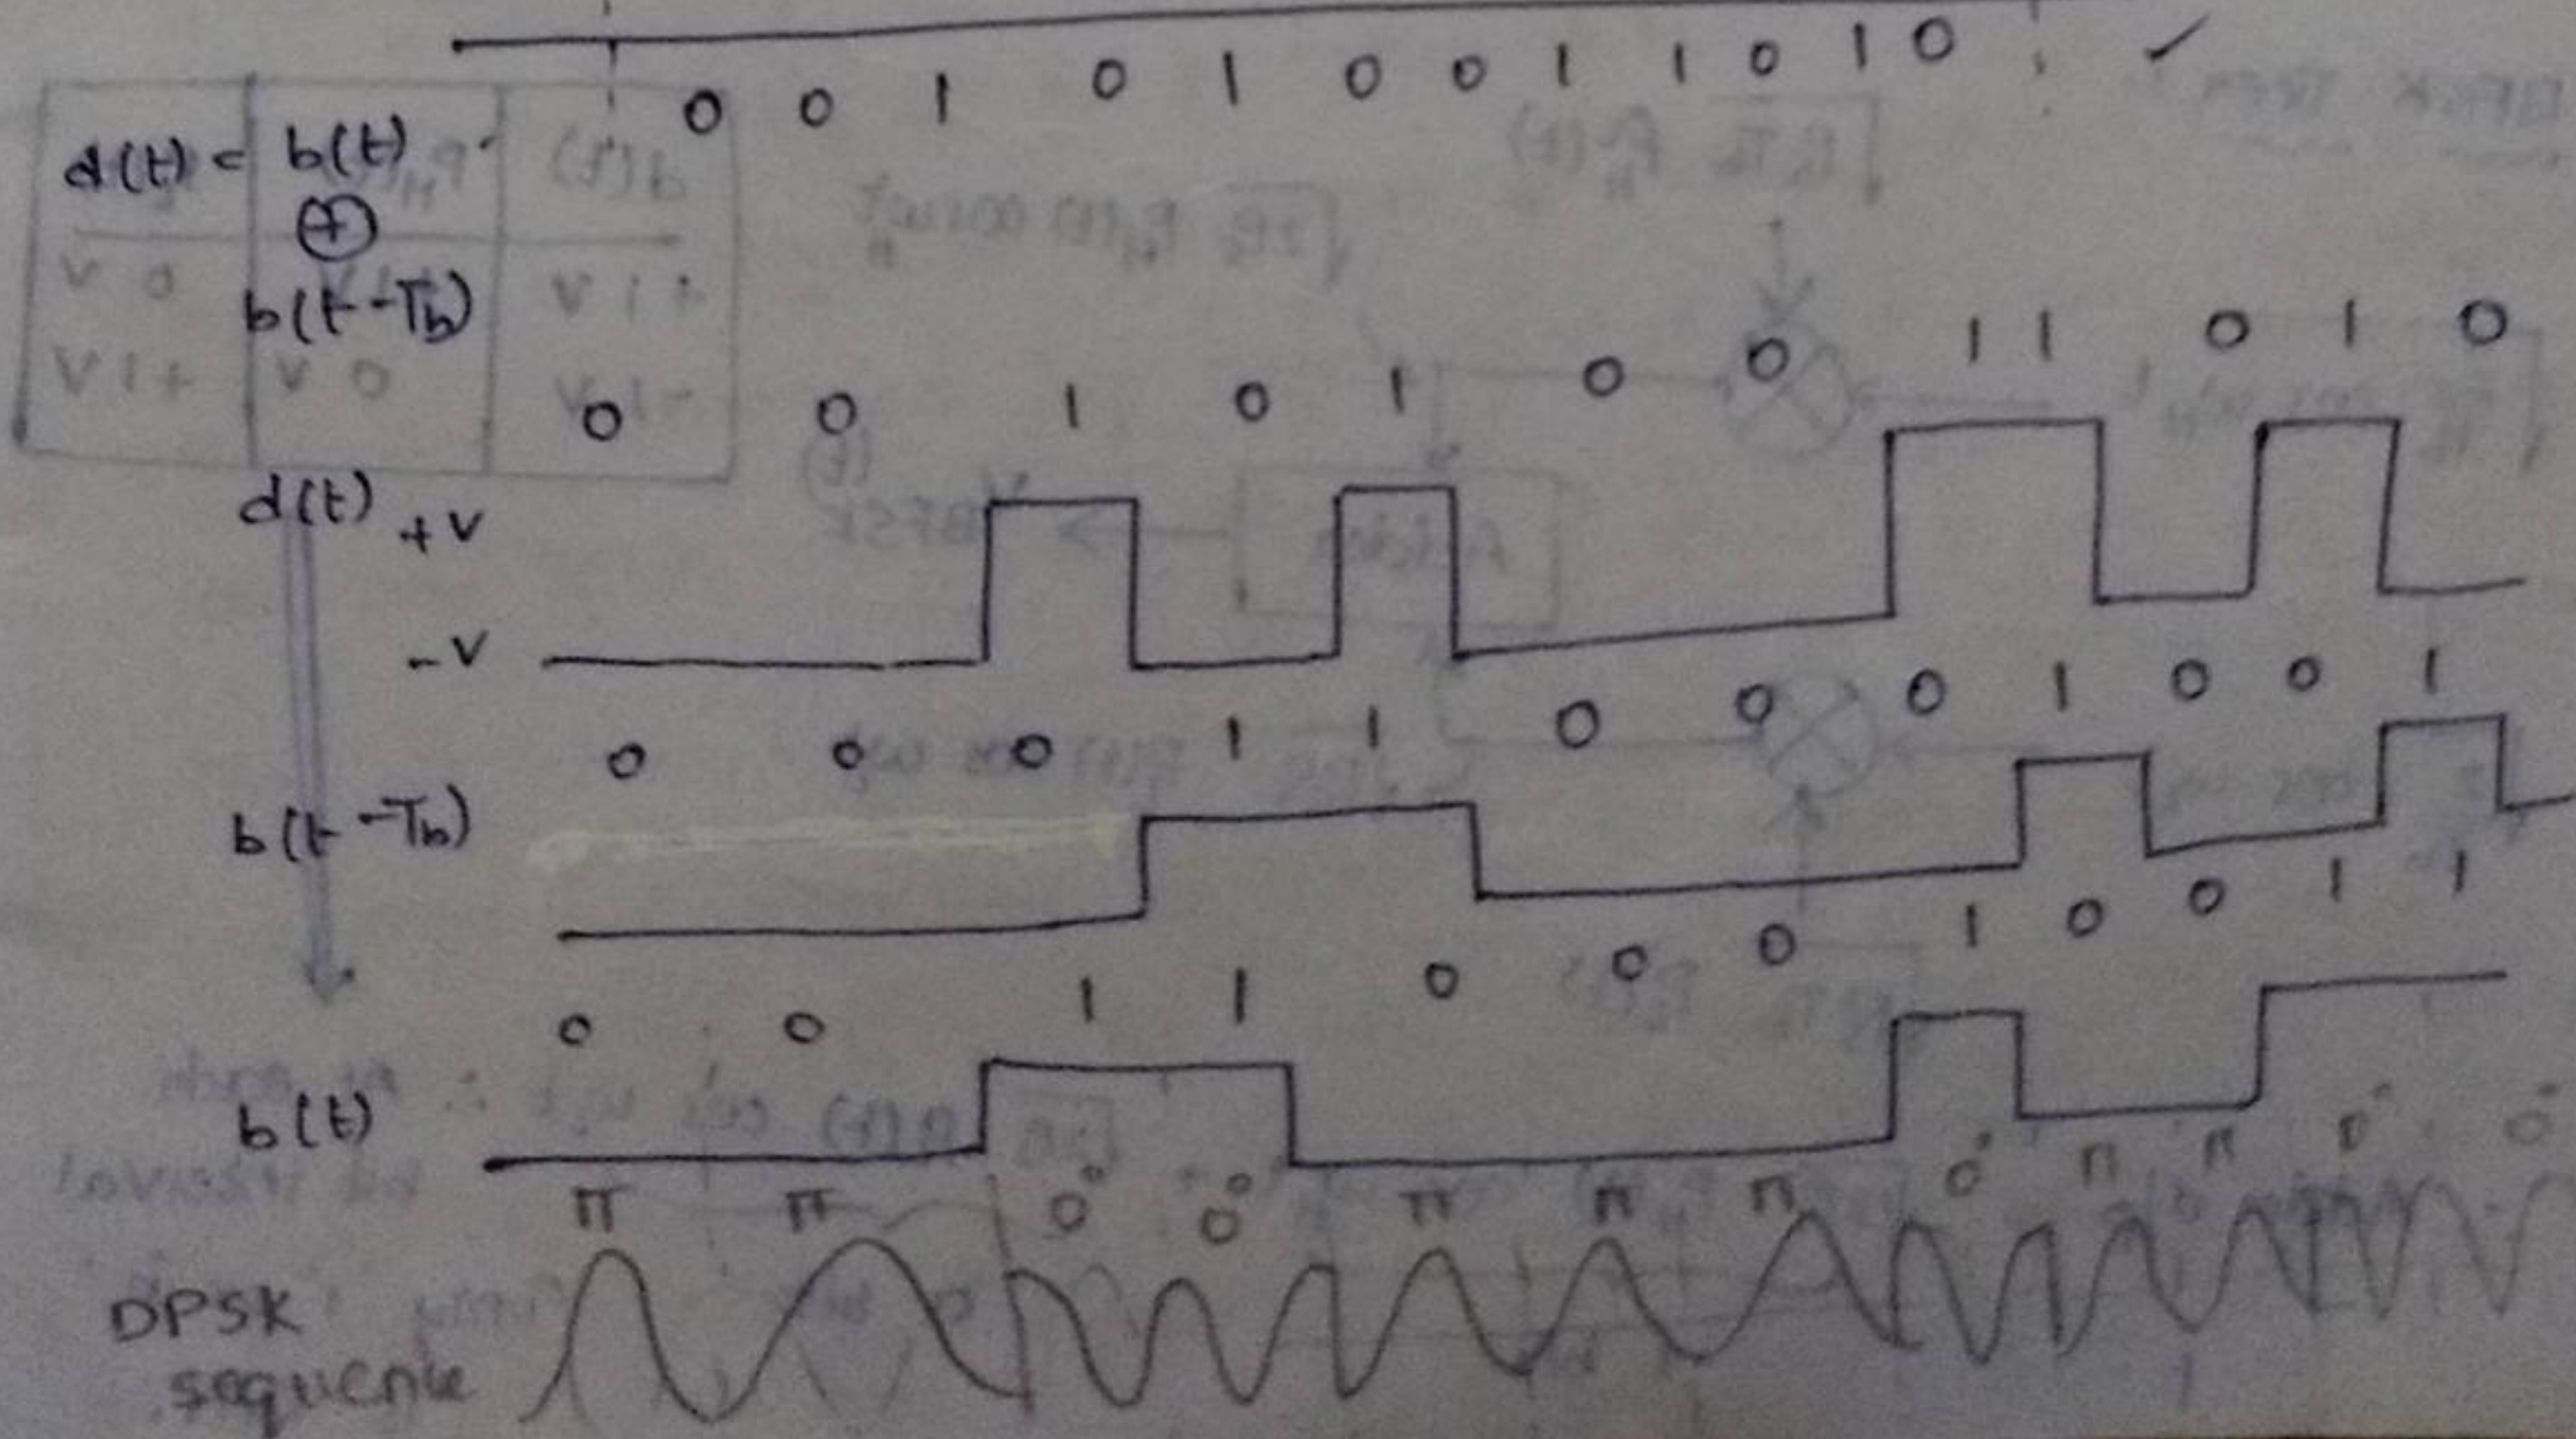 0 0 1 0 1 0 0 1 1 0 1 0 ✓
d(t) = b(t)
⊕
b(t-Tb)
0 0 1 0 1 0 0 1 1 0 1 0
d(t) +V
-V
0 0 0 1 1 0 0 0 1 0 0 1
b(t-Tb)
0 0 1 1 0 0 0 1 0 0 1 1
b(t)
π π 0° 0° π π π 0° π π 0° 0°
DPSK
sequence